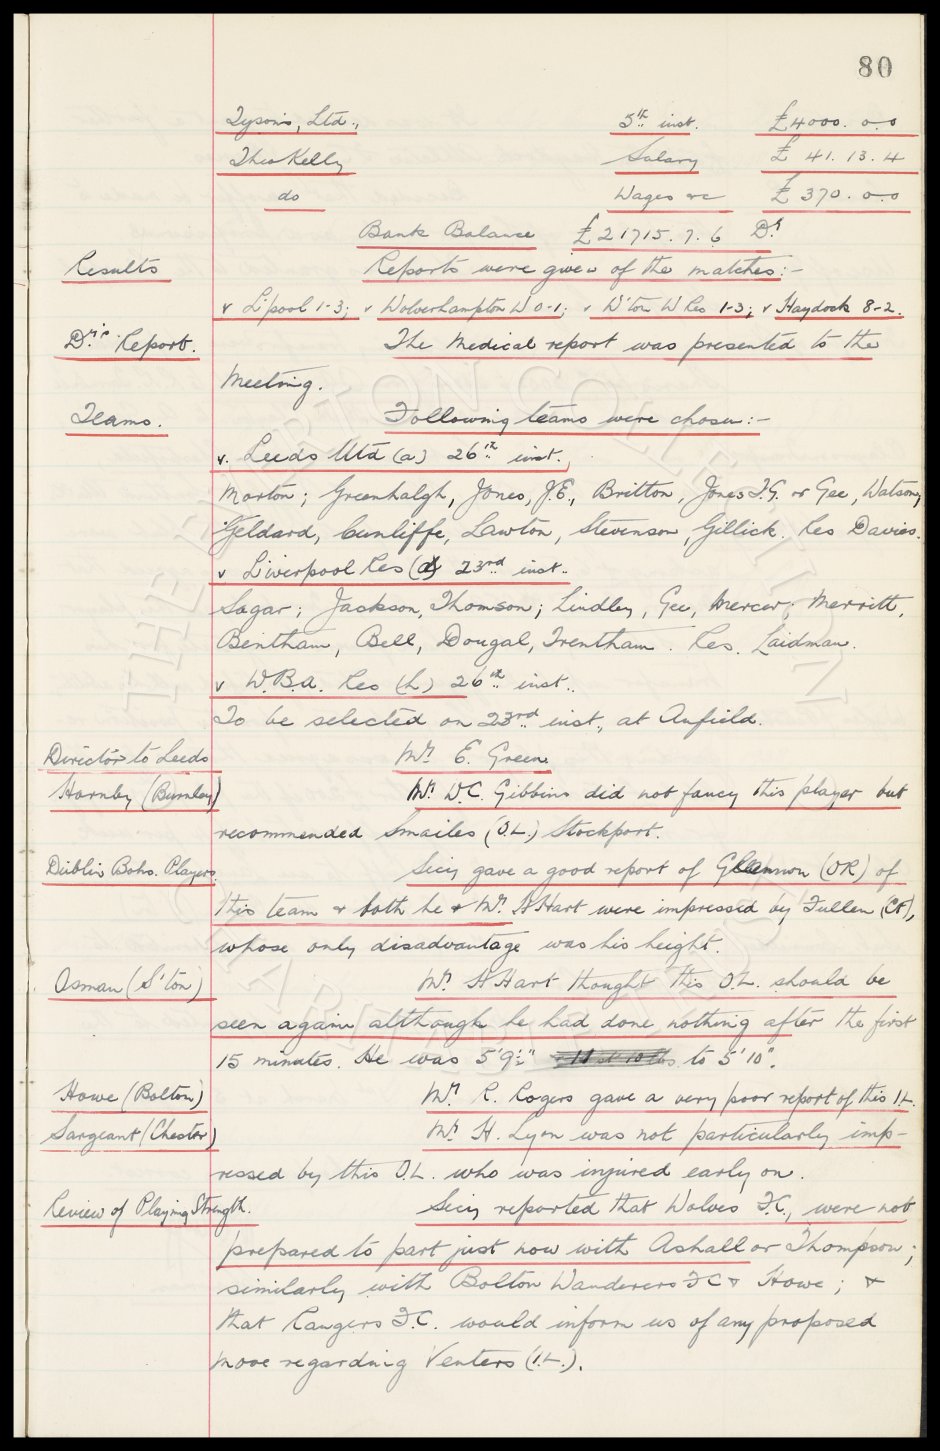 80
Tyson's, Ltd., 5th inst. £4000.0.0
Theo Kelly Salary £ 41.13.4
do Wages &c £ 370.0.0
Bank Balance £21715.7.6 Dr
Results Reports were given of the matches:-
v L'pool 1-3; v Wolverhampton W 0-1; v W'ton W Res 1-3; v Haydock 8-2.
Dr's Report. The Medical report was presented to the
Meeting.
Teams. Following teams were chosen:-
v. Leeds Utd (a) 26th inst.
Morton; Greenhalgh, Jones, J.E., Britton, Jones T.G. or Gee, Watson,
Geldard, Cunliffe, Lawton, Stevenson, Gillick. Res Davies.
v Liverpool Res (a) 23rd inst.
Sagar; Jackson, Thomson; Lindley, Gee, Mercer; Merritt,
Bentham, Bell, Dougal, Trentham. Res. Laidman.
v W.B.A. Res (h) 26th inst.
To be selected on 23rd inst., at Anfield.
Director to Leeds Mr E. Green
Hornby (Burnley) Mr W.C. Gibbins did not fancy this player but
recommended Smailes (O.L.) Stockport.
Dublin Bohs. Players. Secy gave a good report of Glennon (OR) of
this team & both he & Mr A Hart were impressed by Fullen (CF),
whose only disadvantage was his height.
Osman (S'ton) Mr A Hart thought this O.L. should be
seen again although he had done nothing after the first
15 minutes. He was 5'9½" to 5'10".
Howe (Bolton) Mr R. Rogers gave a very poor report of this I.L.
Sargeant (Chester) Mr H. Lyon was not particularly imp-
ressed by this O.L. who was injured early on.
Review of Playing Strength. Secy reported that Wolves F.C., were not
prepared to part just now with Ashall or Thompson;
similarly with Bolton Wanderers F C & Howe; &
that Rangers F.C. would inform us of any proposed
move regarding Venters (I.L.).
THE EVERTON COLLECTION